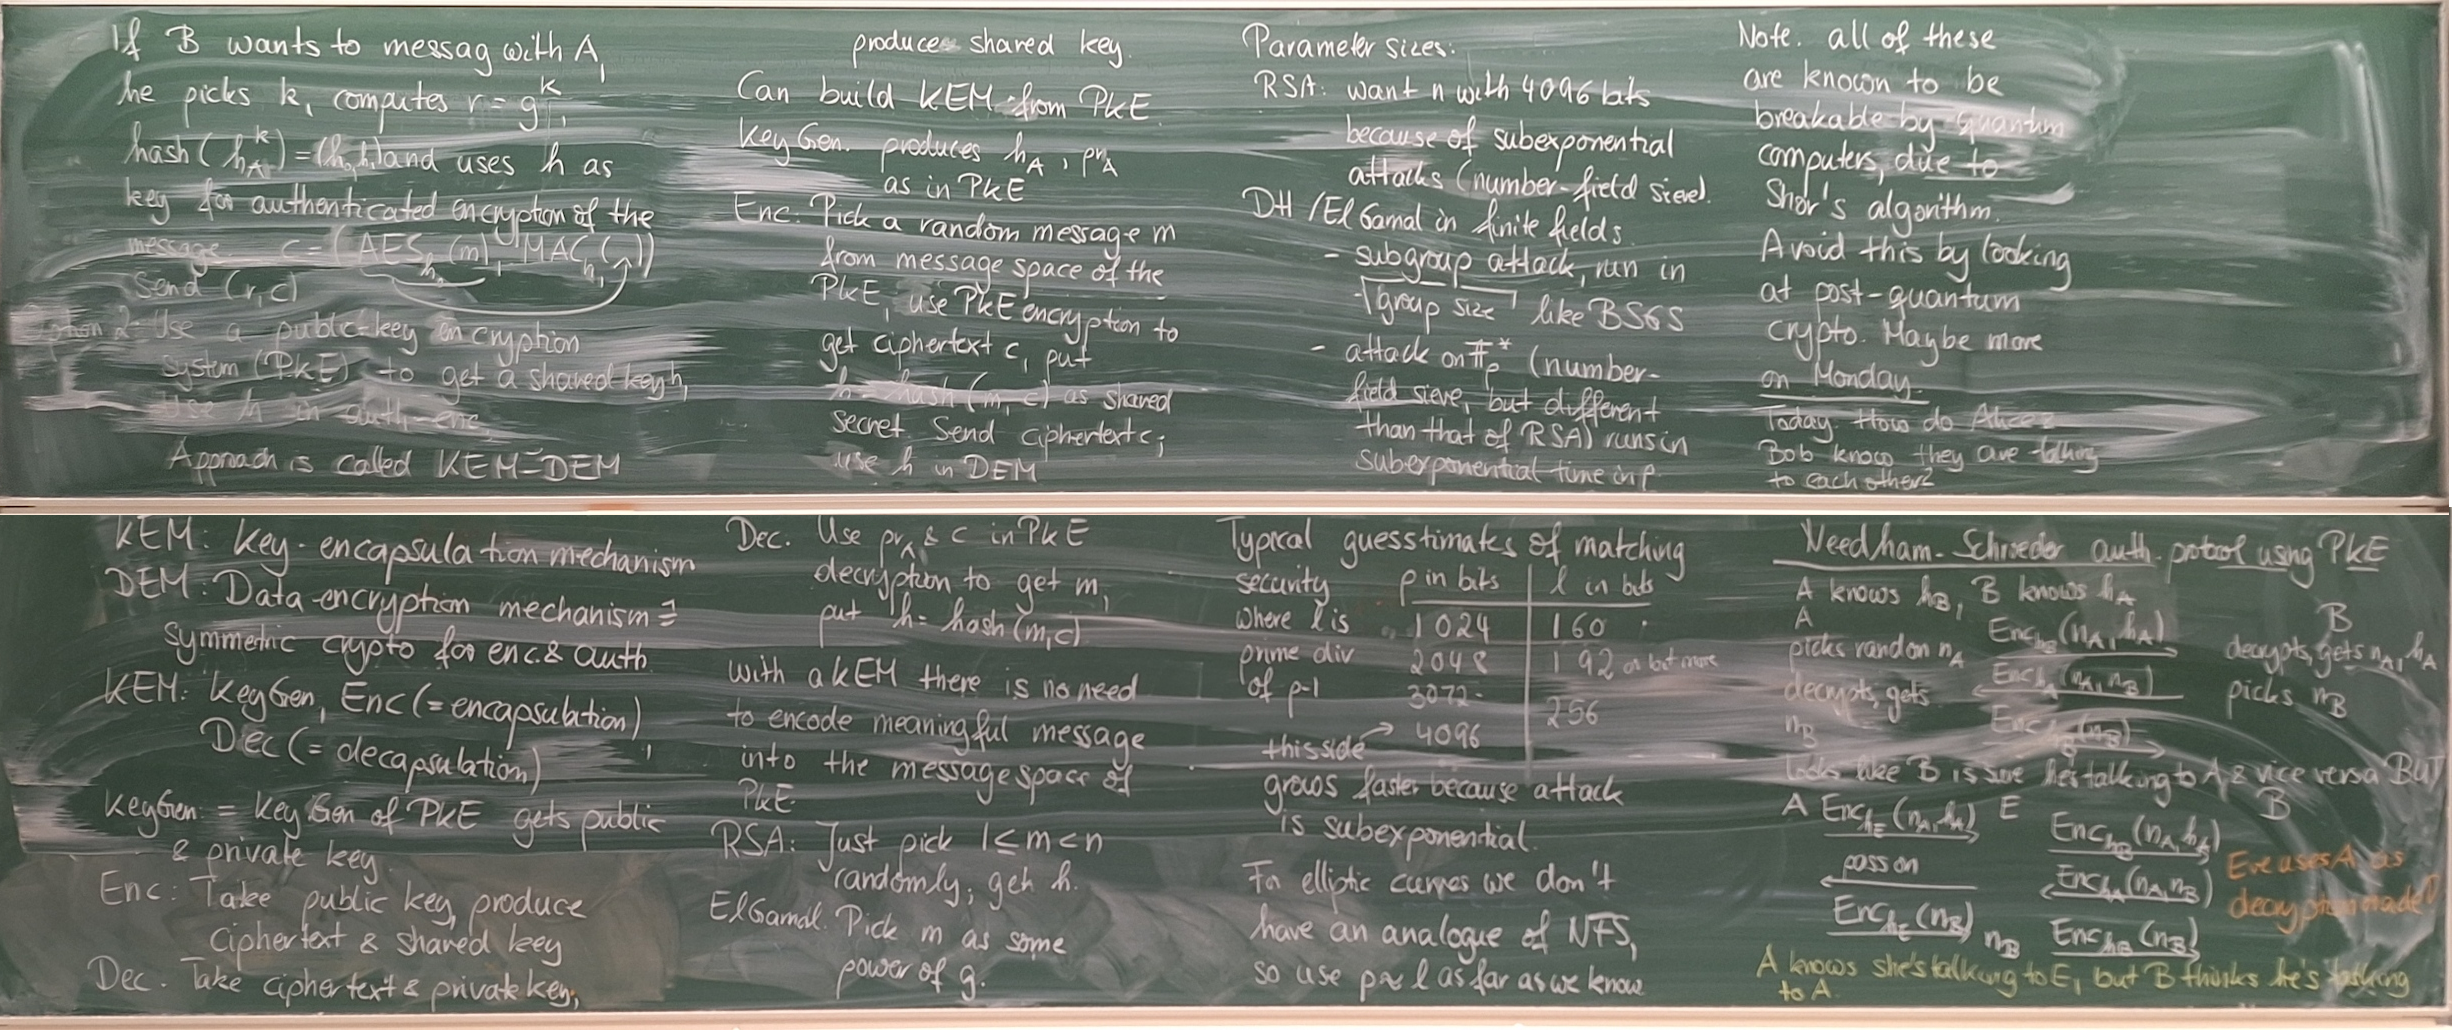 If B wants to messag with A,
he picks k, computes r = g^k,
hash(h_A^k) = (h_0,h_1) and uses h as
key for authenticated encryption of the
message. c = (AES_h(m), MAC_h_1( ))
Send (r,c)
Option 2: Use a public-key encryption
system (PkE) to get a shared key h,
use h in auth-enc.
Approach is called KEM-DEM
KEM: Key-encapsulation mechanism
DEM: Data encryption mechanism =
symmetric crypto for enc. & auth
KEM: KeyGen, Enc (= encapsulation)
Dec (= decapsulation)
KeyGen = KeyGen of PkE gets public
& private key
Enc: Take public key, produce
ciphertext & shared key
Dec. Take ciphertext & private key,
produce shared key.
Can build KEM from PkE.
KeyGen. produces h_A, pr_A
as in PkE
Enc: Pick a random message m
from message space of the
PkE, use PkE encryption to
get ciphertext c, put
h = hash(m,c) as shared
secret. Send ciphertext c;
use h in DEM
Dec. Use pr_A & c in PkE
decryption to get m,
put h = hash(m,c).
with a KEM there is no need
to encode meaningful message
into the message space of
PkE.
RSA: Just pick 1 ≤ m < n
randomly; get h.
ElGamal. Pick m as some
power of g.
Parameter sizes:
RSA: want n with 4096 bits
because of subexponential
attacks (number-field sieve).
DH / ElGamal in finite fields.
- subgroup attack, run in
√group size like BSGS
- attack on F_p^* (number-
field sieve, but different
than that of RSA) runs in
subexponential time in p
Typical guesstimates of matching
security p in bits l in bits
where l is 1024 160
prime div 2048 192 or bit more
of p-1 3072
256
this side → 4096
grows faster because attack
is subexponential.
For elliptic curves we don't
have an analogue of NFS,
so use p ≈ l as far as we know
Note. all of these
are known to be
breakable by quantum
computers, due to
Shor's algorithm.
Avoid this by looking
at post-quantum
crypto. Maybe more
on Monday.
Today. How do Alice &
Bob know they are talking
to each other?
Needham-Schroeder auth. protocol using PkE
A knows h_B, B knows h_A
A B
picks random n_A Enc_h_B(n_A, h_A) decrypts, gets n_A, h_A
decrypts, gets Enc_h_A(n_A, n_B) picks n_B
n_B Enc_h_B(n_B)
looks like B is sure he's talking to A & vice versa BUT
A Enc_h_E(n_A, h_A) E Enc_h_B(n_A, h_A) B
pass on Enc_h_A(n_A, n_B) Eve uses A as
decryption
Enc_h_E(n_B) n_B Enc_h_B(n_B)
A knows she's talking to E, but B thinks he's talking
to A.